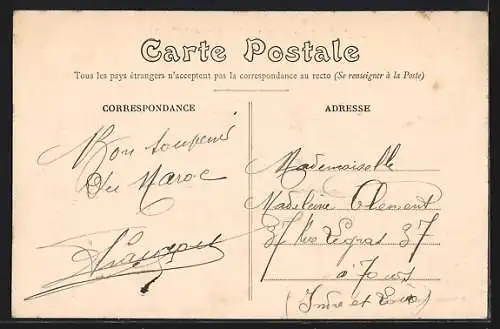 Carte Postale
Tous les pays étrangers n'acceptent pas la correspondance au recto (Se renseigner à la Poste)
CORRESPONDANCE
Bon Souvenir
Du Maroc
ADRESSE
Mademoiselle
Madeleine Clement
37 Rue Legras 37
à Tours
(Indre et Loire)